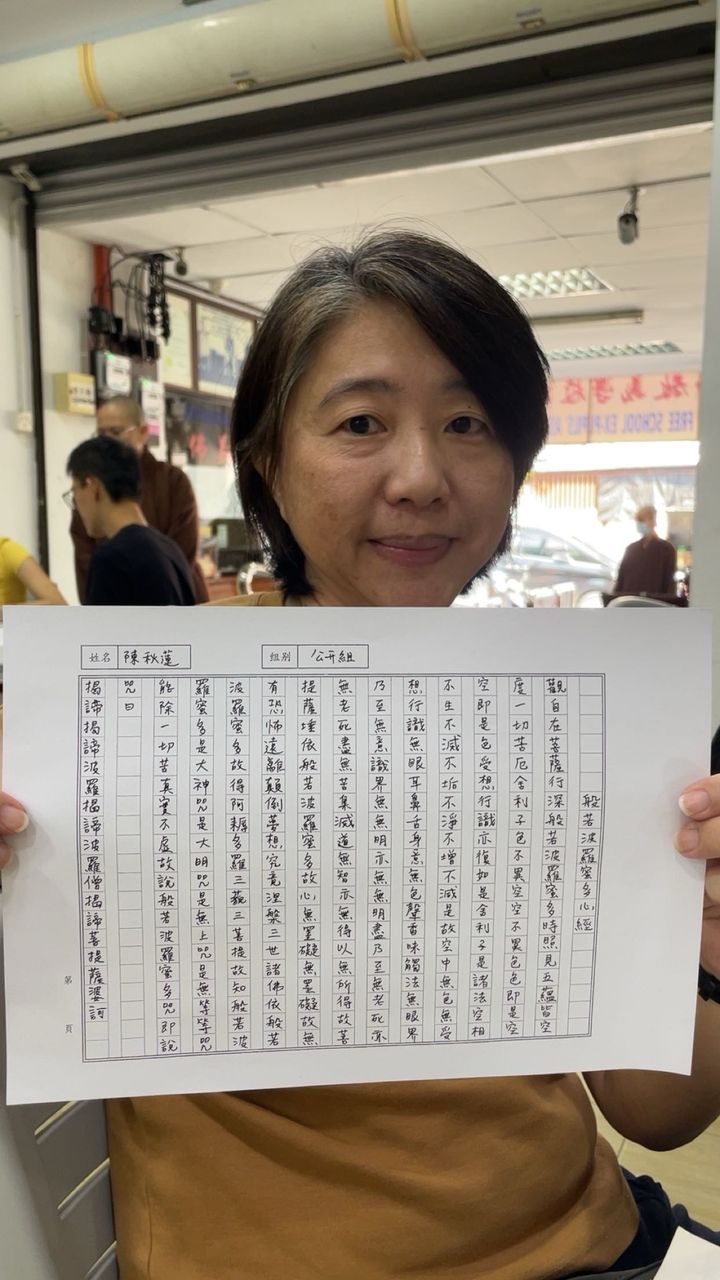 姓名 陳秋蓮 组别 公开組
般若波羅蜜多心經
觀自在菩薩行深般若波羅蜜多時照見五蘊皆空
度一切苦厄舍利子色不異空空不異色色即是空
空即是色受想行識亦復如是舍利子是諸法空相
不生不滅不垢不淨不增不減是故空中無色無受
想行識無眼耳鼻舌身意無色聲香味觸法無眼界
乃至無意識界無無明亦無無明盡乃至無老死亦
無老死盡無苦集滅道無智亦無得以無所得故菩
提薩埵依般若波羅蜜多故心無罣礙無罣礙故無
有恐怖遠離顛倒夢想究竟涅槃三世諸佛依般若
波羅蜜多故得阿耨多羅三藐三菩提故知般若波
羅蜜多是大神咒是大明咒是無上咒是無等等咒
能除一切苦真實不虛故說般若波羅蜜多咒即說
咒曰
揭諦揭諦波羅揭諦波羅僧揭諦菩提薩婆訶
第 頁
FREE SCHOOL EX-PUPILS